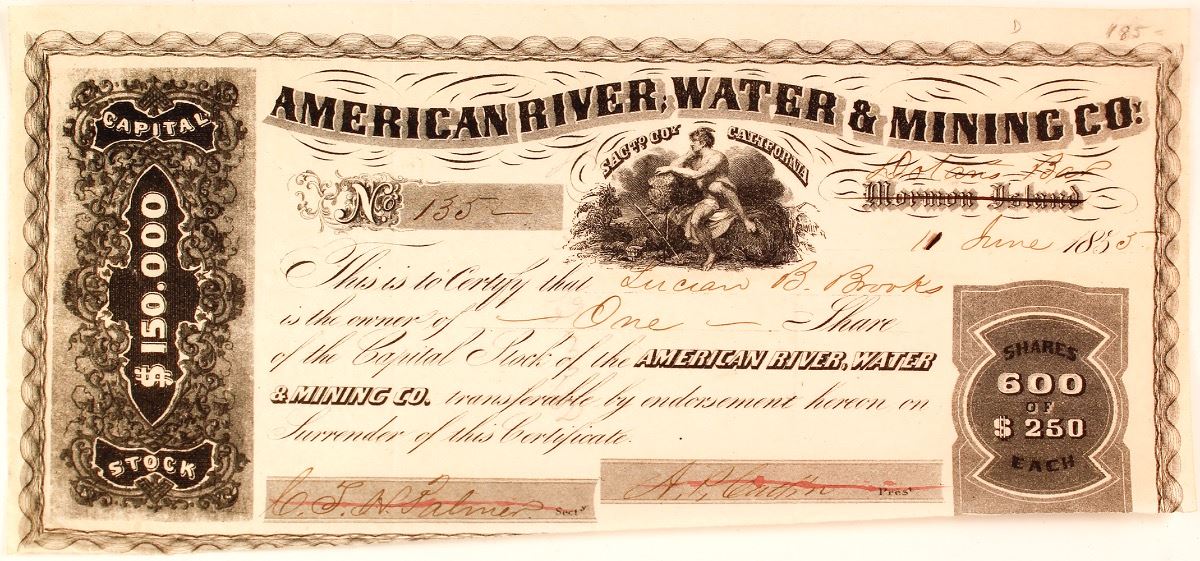 D 185-
AMERICAN RIVER, WATER & MINING COY.
SACTO COY CALIFORNIA
CAPITAL
$150.000
STOCK
No 135
Bar
Mormon Island
11 June 1855
This is to Certify that Lucian B. Brooks
is the owner of One Share
of the Capital Stock of the AMERICAN RIVER, WATER
& MINING CO. transferable by endorsement hereon on
Surrender of this Certificate.
SHARES
600
OF
$250
EACH
C. T. H. Palmer Secty
A. P. Catlin Prest